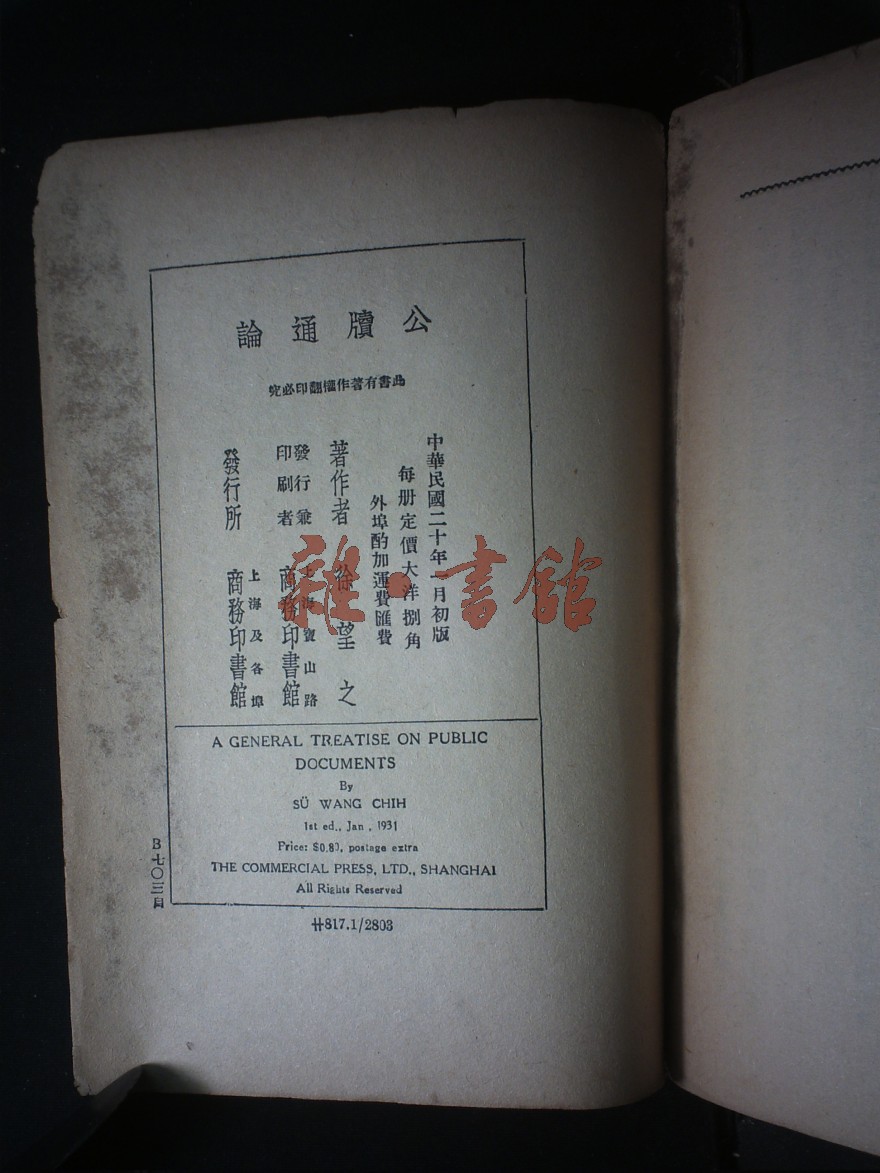 公牘通論
此書有著作權翻印必究
中華民國二十年一月初版
每册定價大洋捌角
外埠酌加運費匯費
著作者 徐望之
發行兼印刷者 上海寶山路 商務印書館
發行所 上海及各埠 商務印書館
A GENERAL TREATISE ON PUBLIC
DOCUMENTS
By
SÜ WANG CHIH
1st ed., Jan., 1931
Price: $0.80, postage extra
THE COMMERCIAL PRESS, LTD., SHANGHAI
All Rights Reserved
B七〇三自
817.1/2803
雜·書館